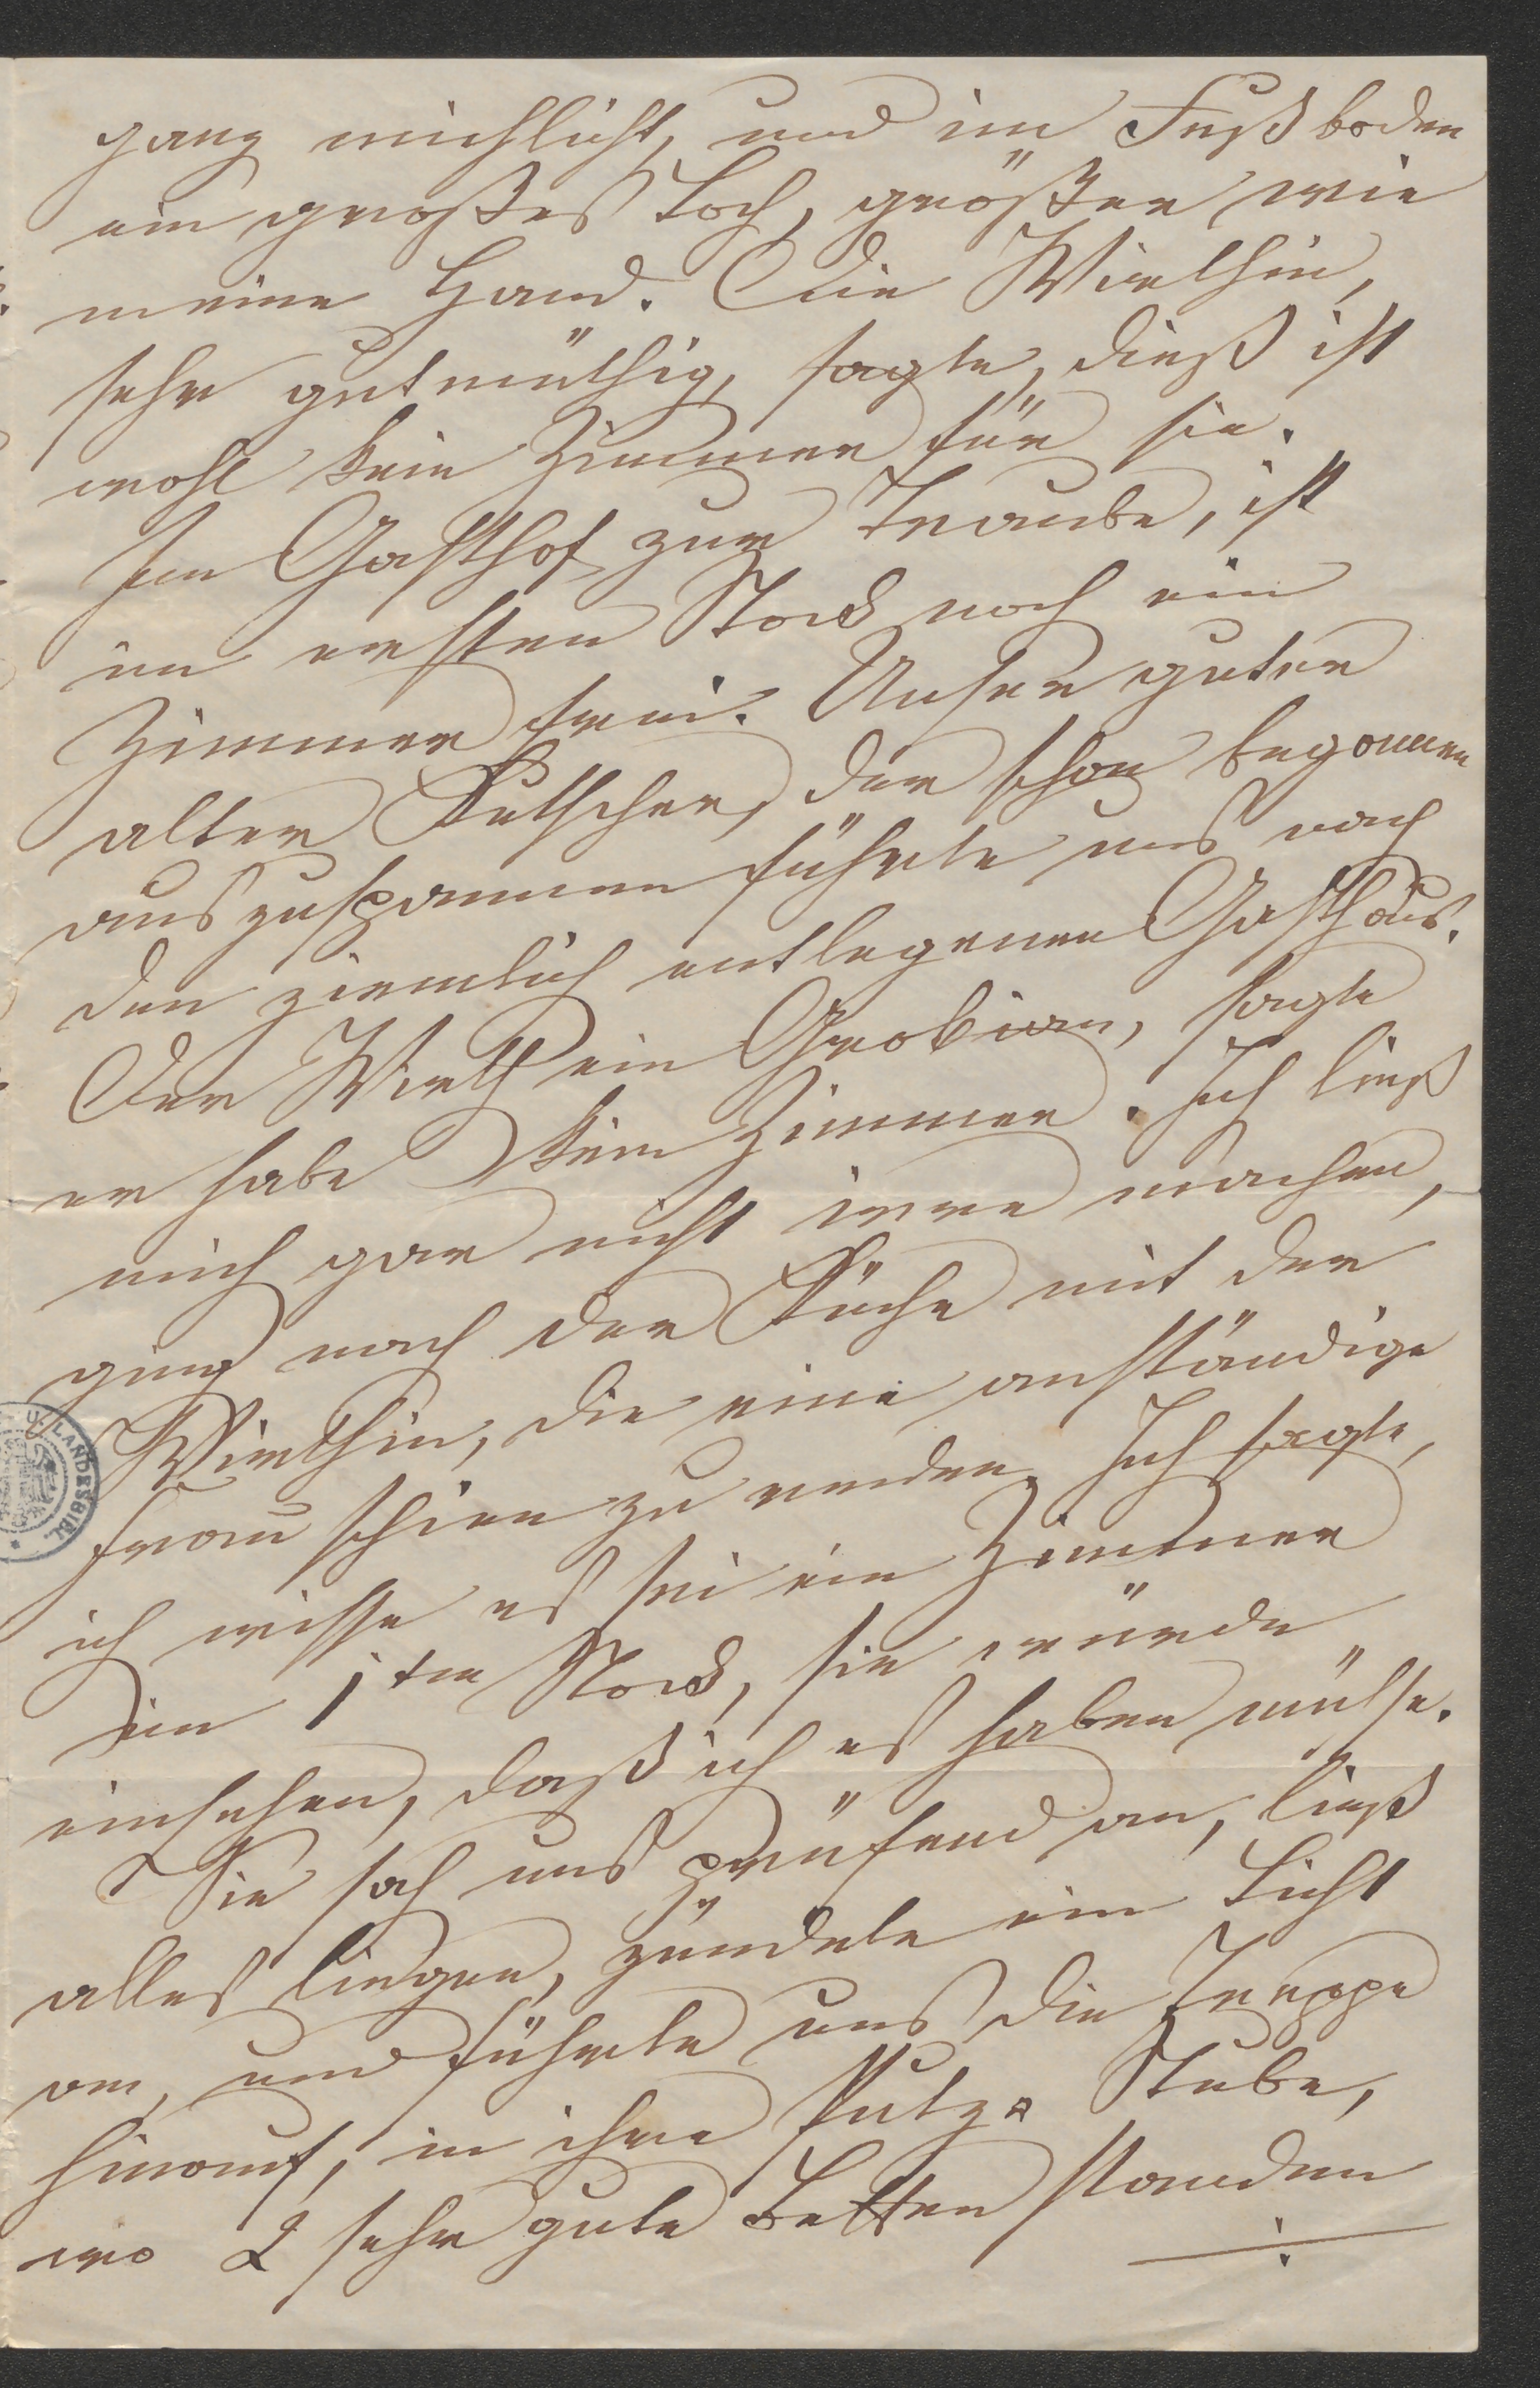 ganz unehlicht, und im Fußboden
ein großes Loch, größer wie
meine Hand. Die Wirthin,
sehr gutmüthig, sagte, dieß ist
wohl kein Zimmer für sie.
Im Gasthof zur Traube, ist
im ersten Stock noch ein
Zimmer frei. Unser guter
alter Kutscher, der schon begonnen
auszuspannen führte uns nach
den ziemlich entlegenen Gasthaus.
Der Wirth ein Grobian, sagte
er habe kein Zimmer. Ich ließ
mich gar nicht irre machen,
ging nach der Küche mit der
Wirthin, die eine anständige
Frau schien zu reden. Ich sagte,
ich wisse es sei ein Zimmer
im 1ten Stock, sie würde
einsehen, daß ich es haben müsse.
Sie sah uns prüfend an, ließ
alles liegen, zündete ein Licht
an, und führte uns die Treppe
hinauf, in ihre Putz= Stube,
wo 2 sehr gute Betten standen
U. LANDESBIBL.